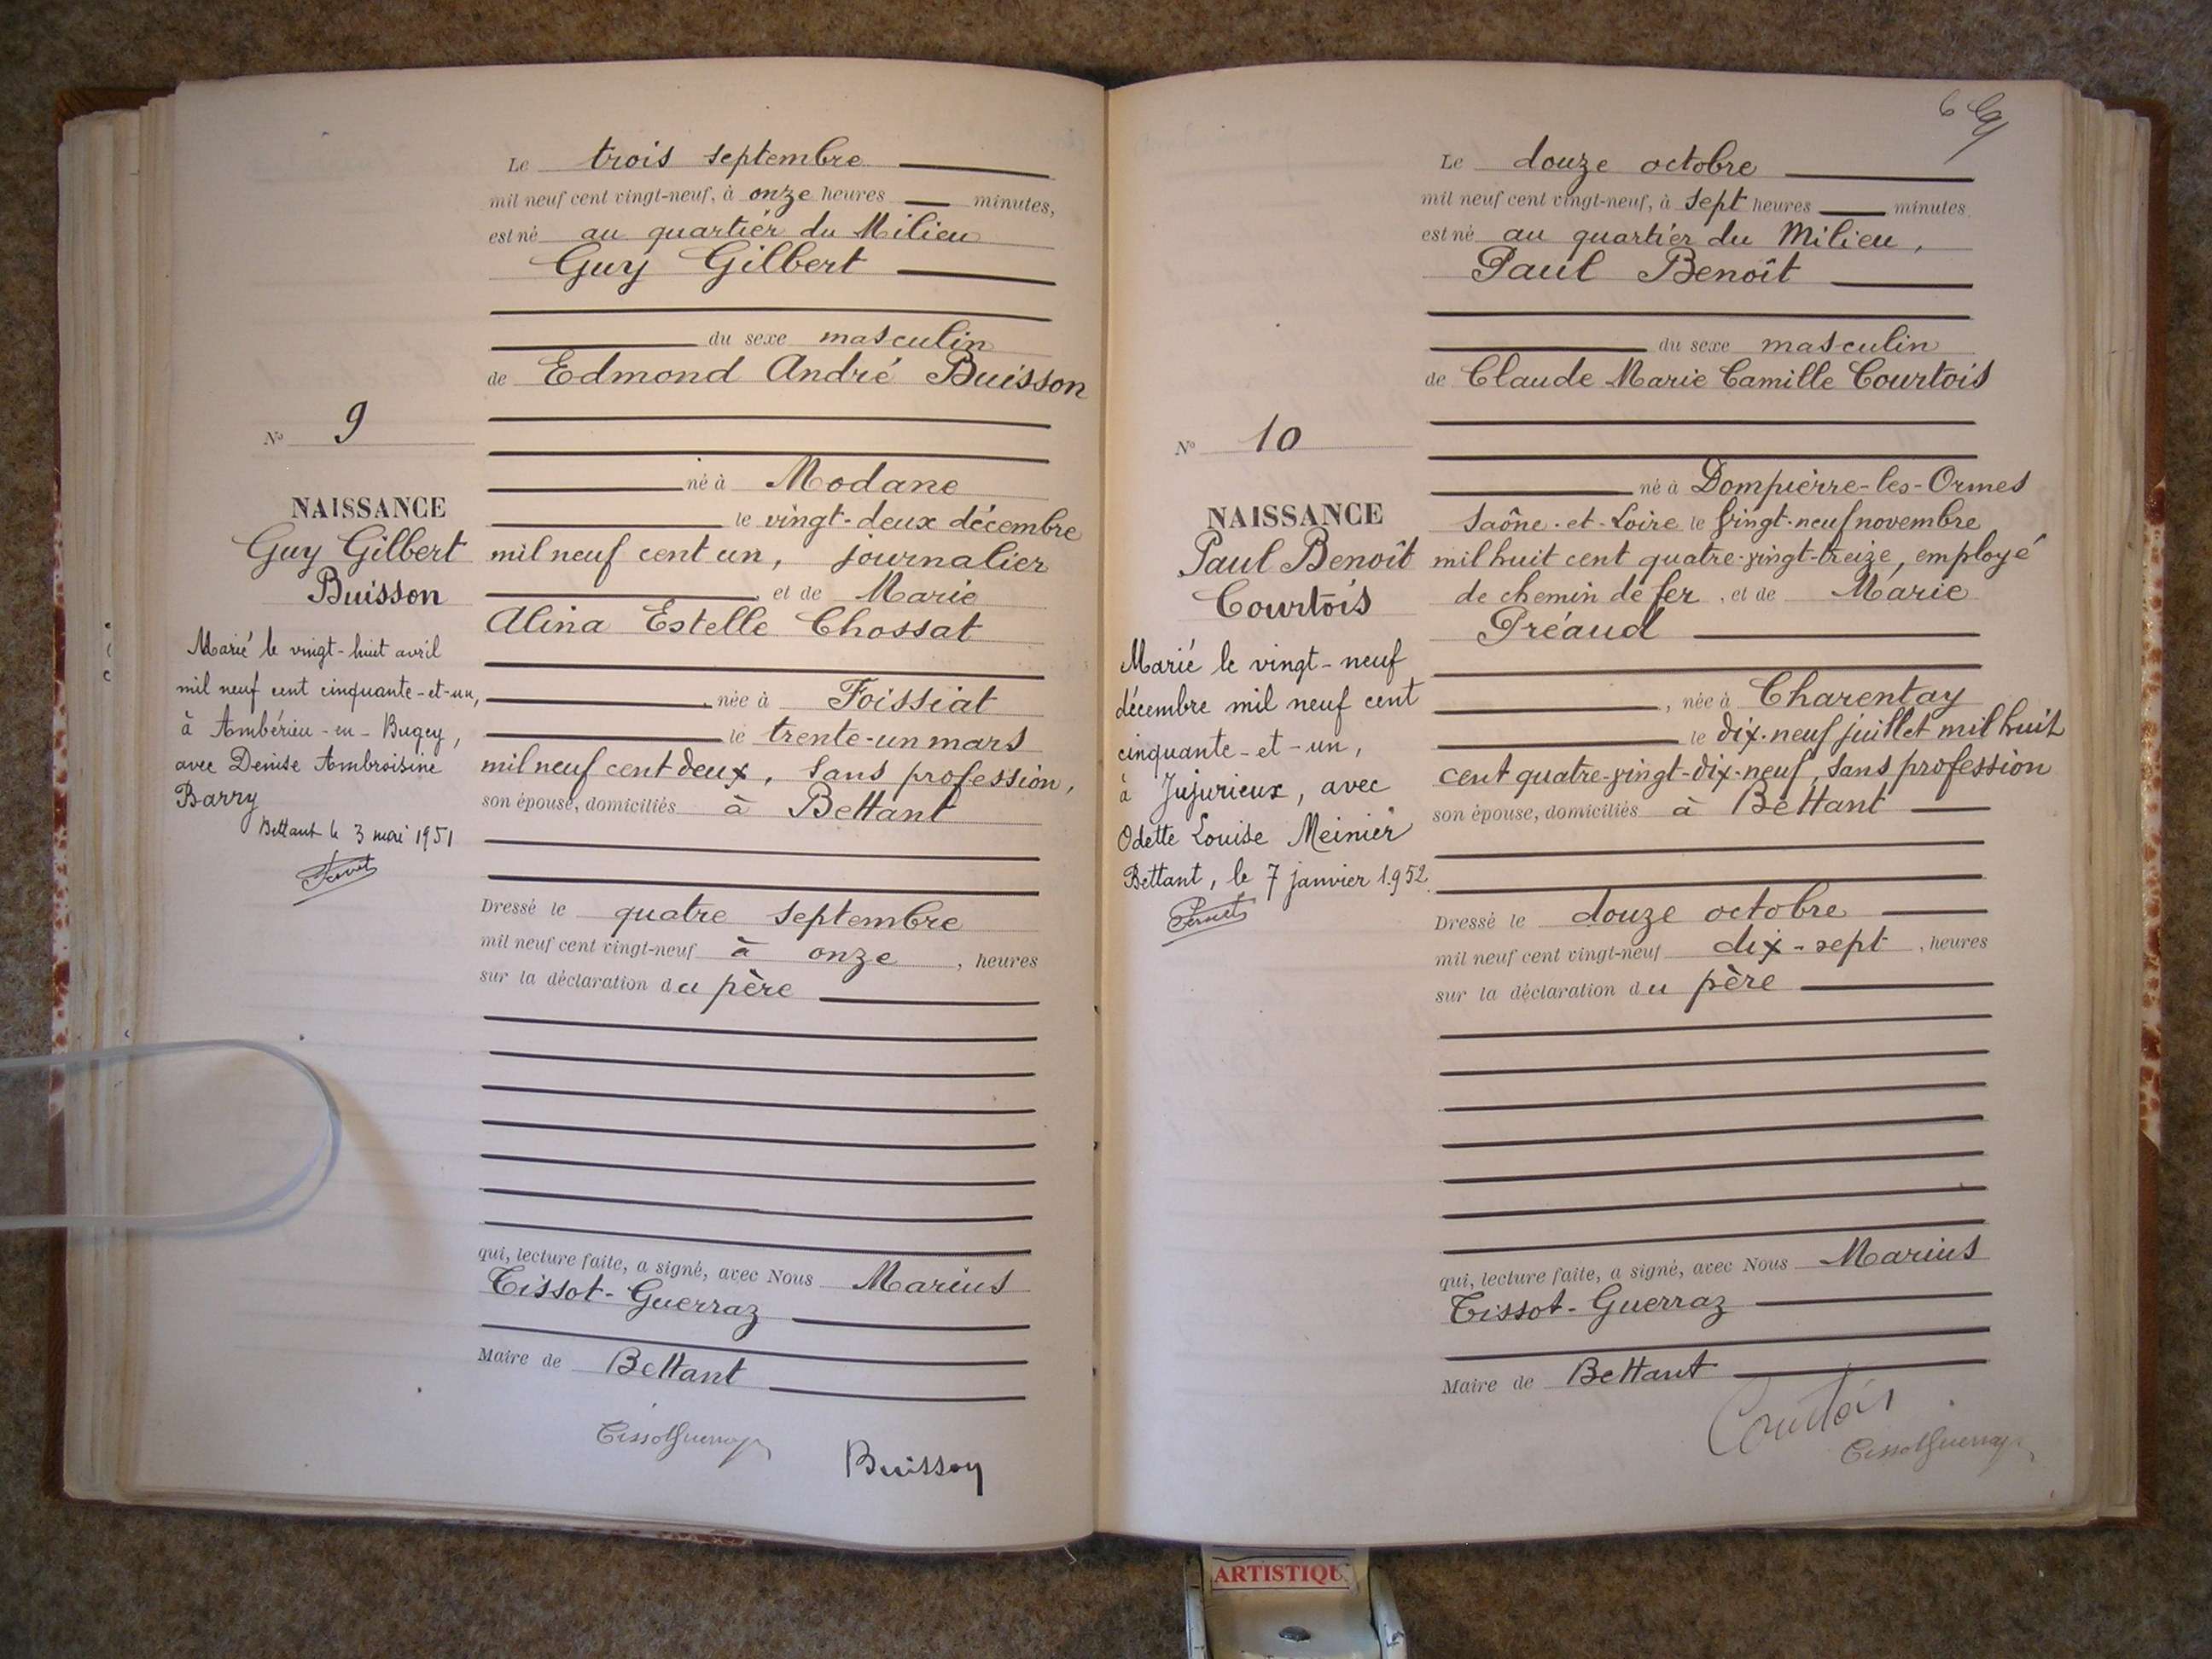 Le trois septembre
mil neuf cent vingt-neuf, à onze heures minutes,
est né au quartier du Milieu
Guy Gilbert
du sexe masculin
de Edmond André Buisson
né à Modane
le vingt-deux décembre
mil neuf cent un, journalier
et de Marie
Alina Estelle Chossat
née à Foissiat
le trente-un mars
mil neuf cent deux, sans profession,
son épouse, domiciliés à Bettant
Dressé le quatre septembre
mil neuf cent vingt-neuf à onze, heures
sur la déclaration du père
qui, lecture faite, a signé, avec Nous Marius
Tissot-Guerraz
Maire de Bettant
TissotGuerraz
Buisson
N° 9
NAISSANCE
Guy Gilbert
Buisson
Marié le vingt-huit avril
mil neuf cent cinquante-et-un,
à Ambérieu-en-Bugey,
avec Denise Ambroisine
Barry
Bettant le 3 mai 1951
Le douze octobre
mil neuf cent vingt-neuf, à sept heures minutes
est né au quartier du Milieu,
Paul Benoît
du sexe masculin
de Claude Marie Camille Courtois
né à Dompierre-les-Ormes
Saône-et-Loire le vingt-neuf novembre
mil huit cent quatre-vingt-treize, employé
de chemin de fer, et de Marie
Préaud
, née à Charentay
le dix-neuf juillet mil huit
cent quatre-vingt-dix-neuf, sans profession
son épouse, domiciliés à Bettant
Dressé le douze octobre
mil neuf cent vingt-neuf dix-sept, heures
sur la déclaration du père
qui, lecture faite, a signé, avec Nous Marius
Tissot-Guerraz
Maire de Bettant
Courtois
TissotGuerraz
N° 10
NAISSANCE
Paul Benoît
Courtois
Marié le vingt-neuf
décembre mil neuf cent
cinquante-et-un,
à Jujurieux, avec
Odette Louise Meinier
Bettant, le 7 janvier 1952.
ARTISTIQU